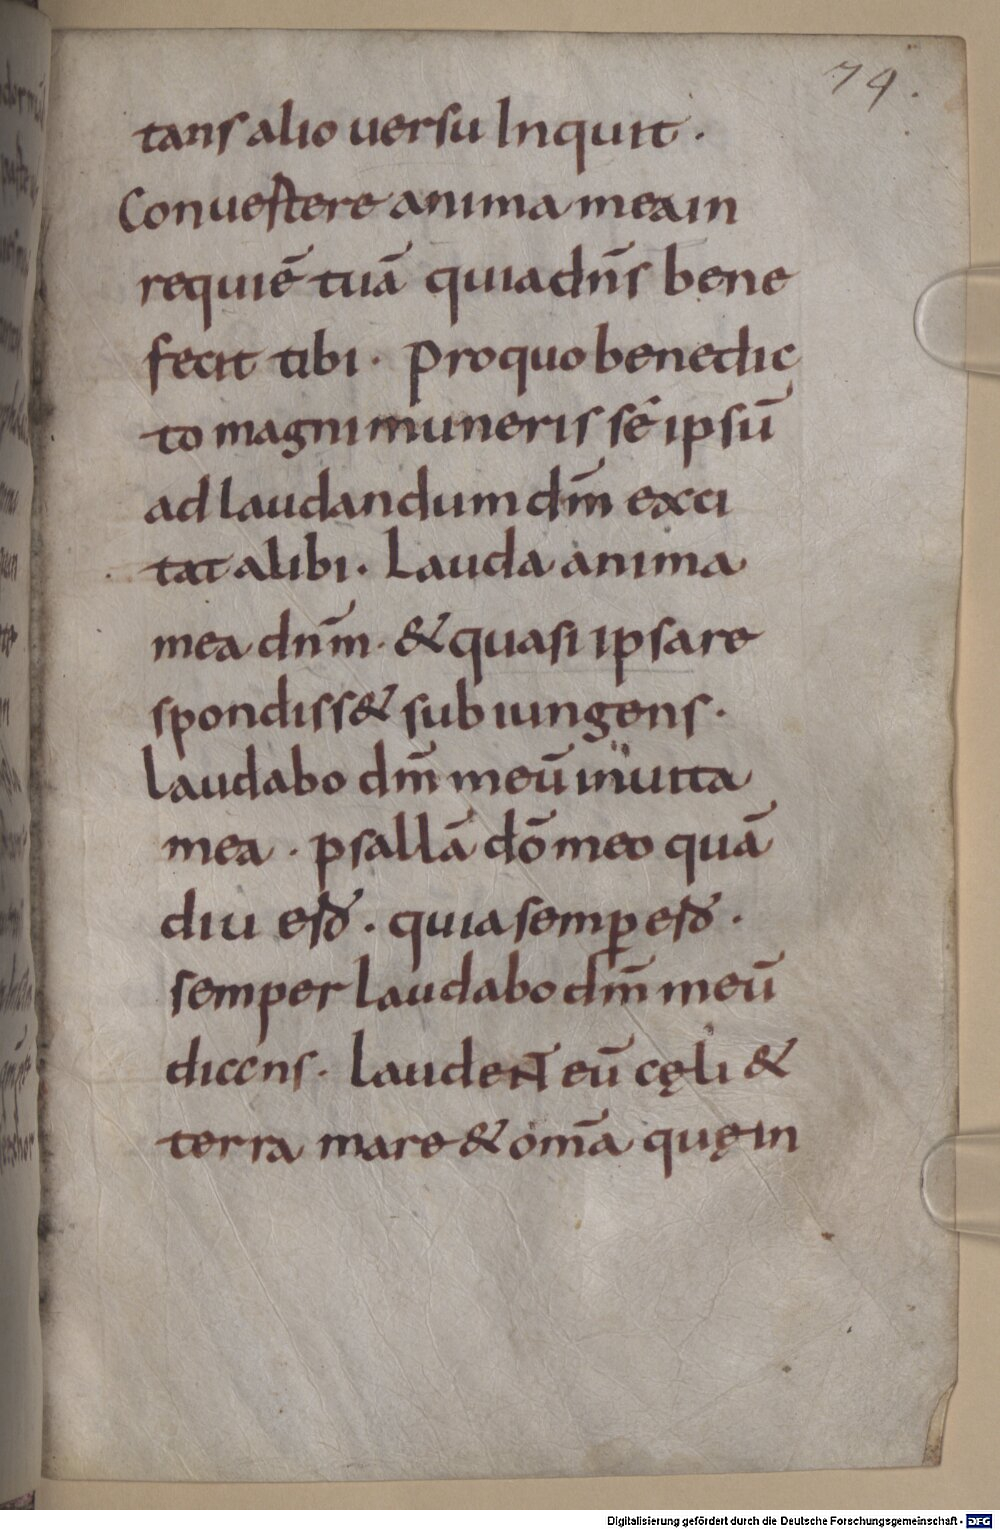 79.
tans alio uersu Inquit.
Conuertere anima mea in
requiē tuā quia dn̄s bene
fecit tibi. Pro quo benedic
to magni muneris sē ipsū
ad laudandum dm̄ exci
tat alibi. Lauda anima
mea dnm̄. & quasi ipsa re
spondiss& subiungens.
laudabo dm̄ meū in uita
mea. psallā dō meo quā
diu erō. quia semp erō.
semper laudabo dm̄ meū
dicens. laudent eū cęli &
terra mare & omā quę in
Digitalisierung gefördert durch die Deutsche Forschungsgemeinschaft - DFG